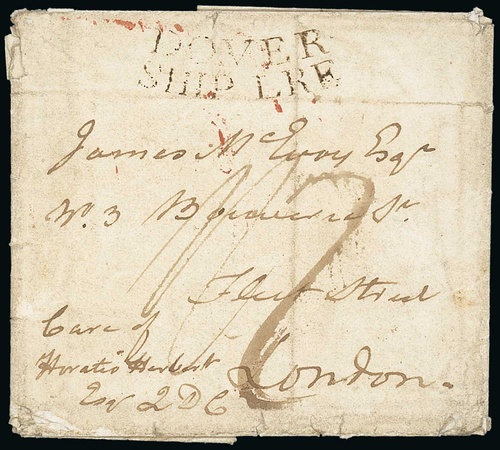 DOVER
SHIP LRE
James McEvoy Esqr
No. 3 Bouverie St.
Fleet Street
Care of
Horatio Herbert
Esqr 2 D C
London.